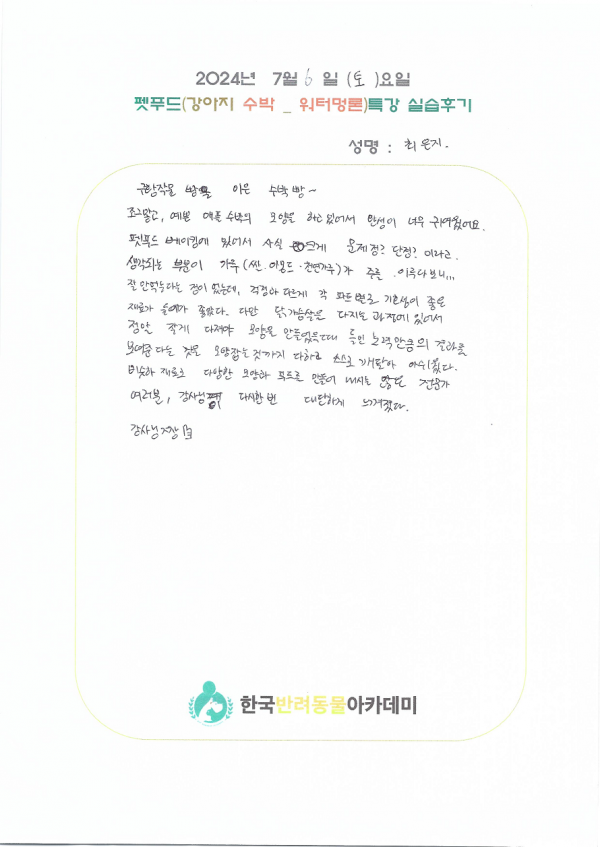 2024년 7월 6일 (토)요일
펫푸드(강아지 수박 _ 워터멍론)특강 실습후기
성명 : 최은지.
작은 수박빵~
조그맣고, 예쁜 애플수박의 모양을 하고있어서 완성이 너무 귀여웠어요.
펫푸드 베이킹에 있어서 사실 크게 문제점? 단점? 이라고
생각되는 부분이 가루(쌀·아몬드·천연가루)가 주를 이루다보니...
잘 안먹는다는 점이 있는데, 걱정과 다르게 각 파트별로 기호성이 좋은
재료가 들어가 좋았다. 다만 닭가슴살을 다지는 과정에 있어서
정말 작게 다져야 모양을 만들었을때 들인 노력만큼의 결과를
보여준다는 것을 모양잡는것까지 다하고 스스로 깨달아 아쉬웠다.
비슷한 재료로 다양한 모양과 푸드를 만들어 내시는 많은 전문가
여러분, 강사님 다시한번 대단하게 느껴졌다.
강사님 짱
한국반려동물아카데미